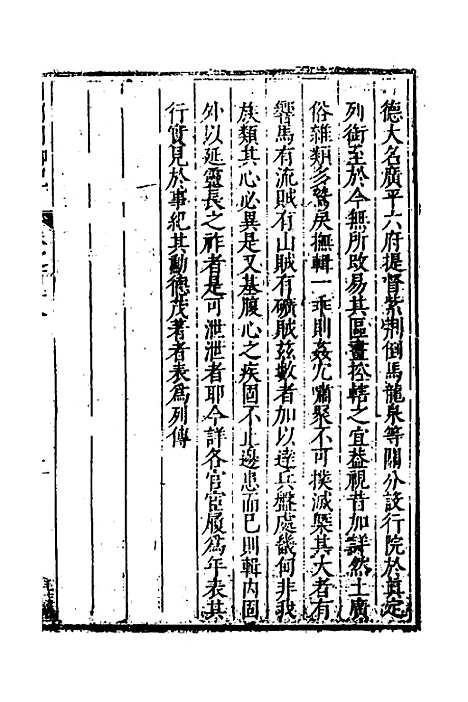 德大名廣平六府提督紫荆倒馬龍泉等關分設行院於真定
列銜至於今無所改易其區畫控轄之宜益視昔加詳然土廣
俗雜類多驁戾撫輯一乖則姦宄嘯聚不可撲滅槩其大者有
響馬有流賊有山賊有礦賊兹數者加以達兵盤處畿何非我
族類其心必異是又基腹心之疾固不止邊患而已則輯内固
外以延靈長之祚者是可泄泄者耶今詳各官宦履爲年表其
行實見於事紀其勳德茂著者表爲列傳